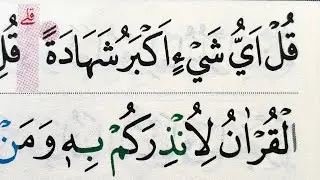 قُلْ اَیُّ شَیْءٍ اَكْبَرُ شَهَادَةً ؕ قُلِ
الْقُرْاٰنُ لِاُنْذِرَكُمْ بِهٖ وَمَنْ